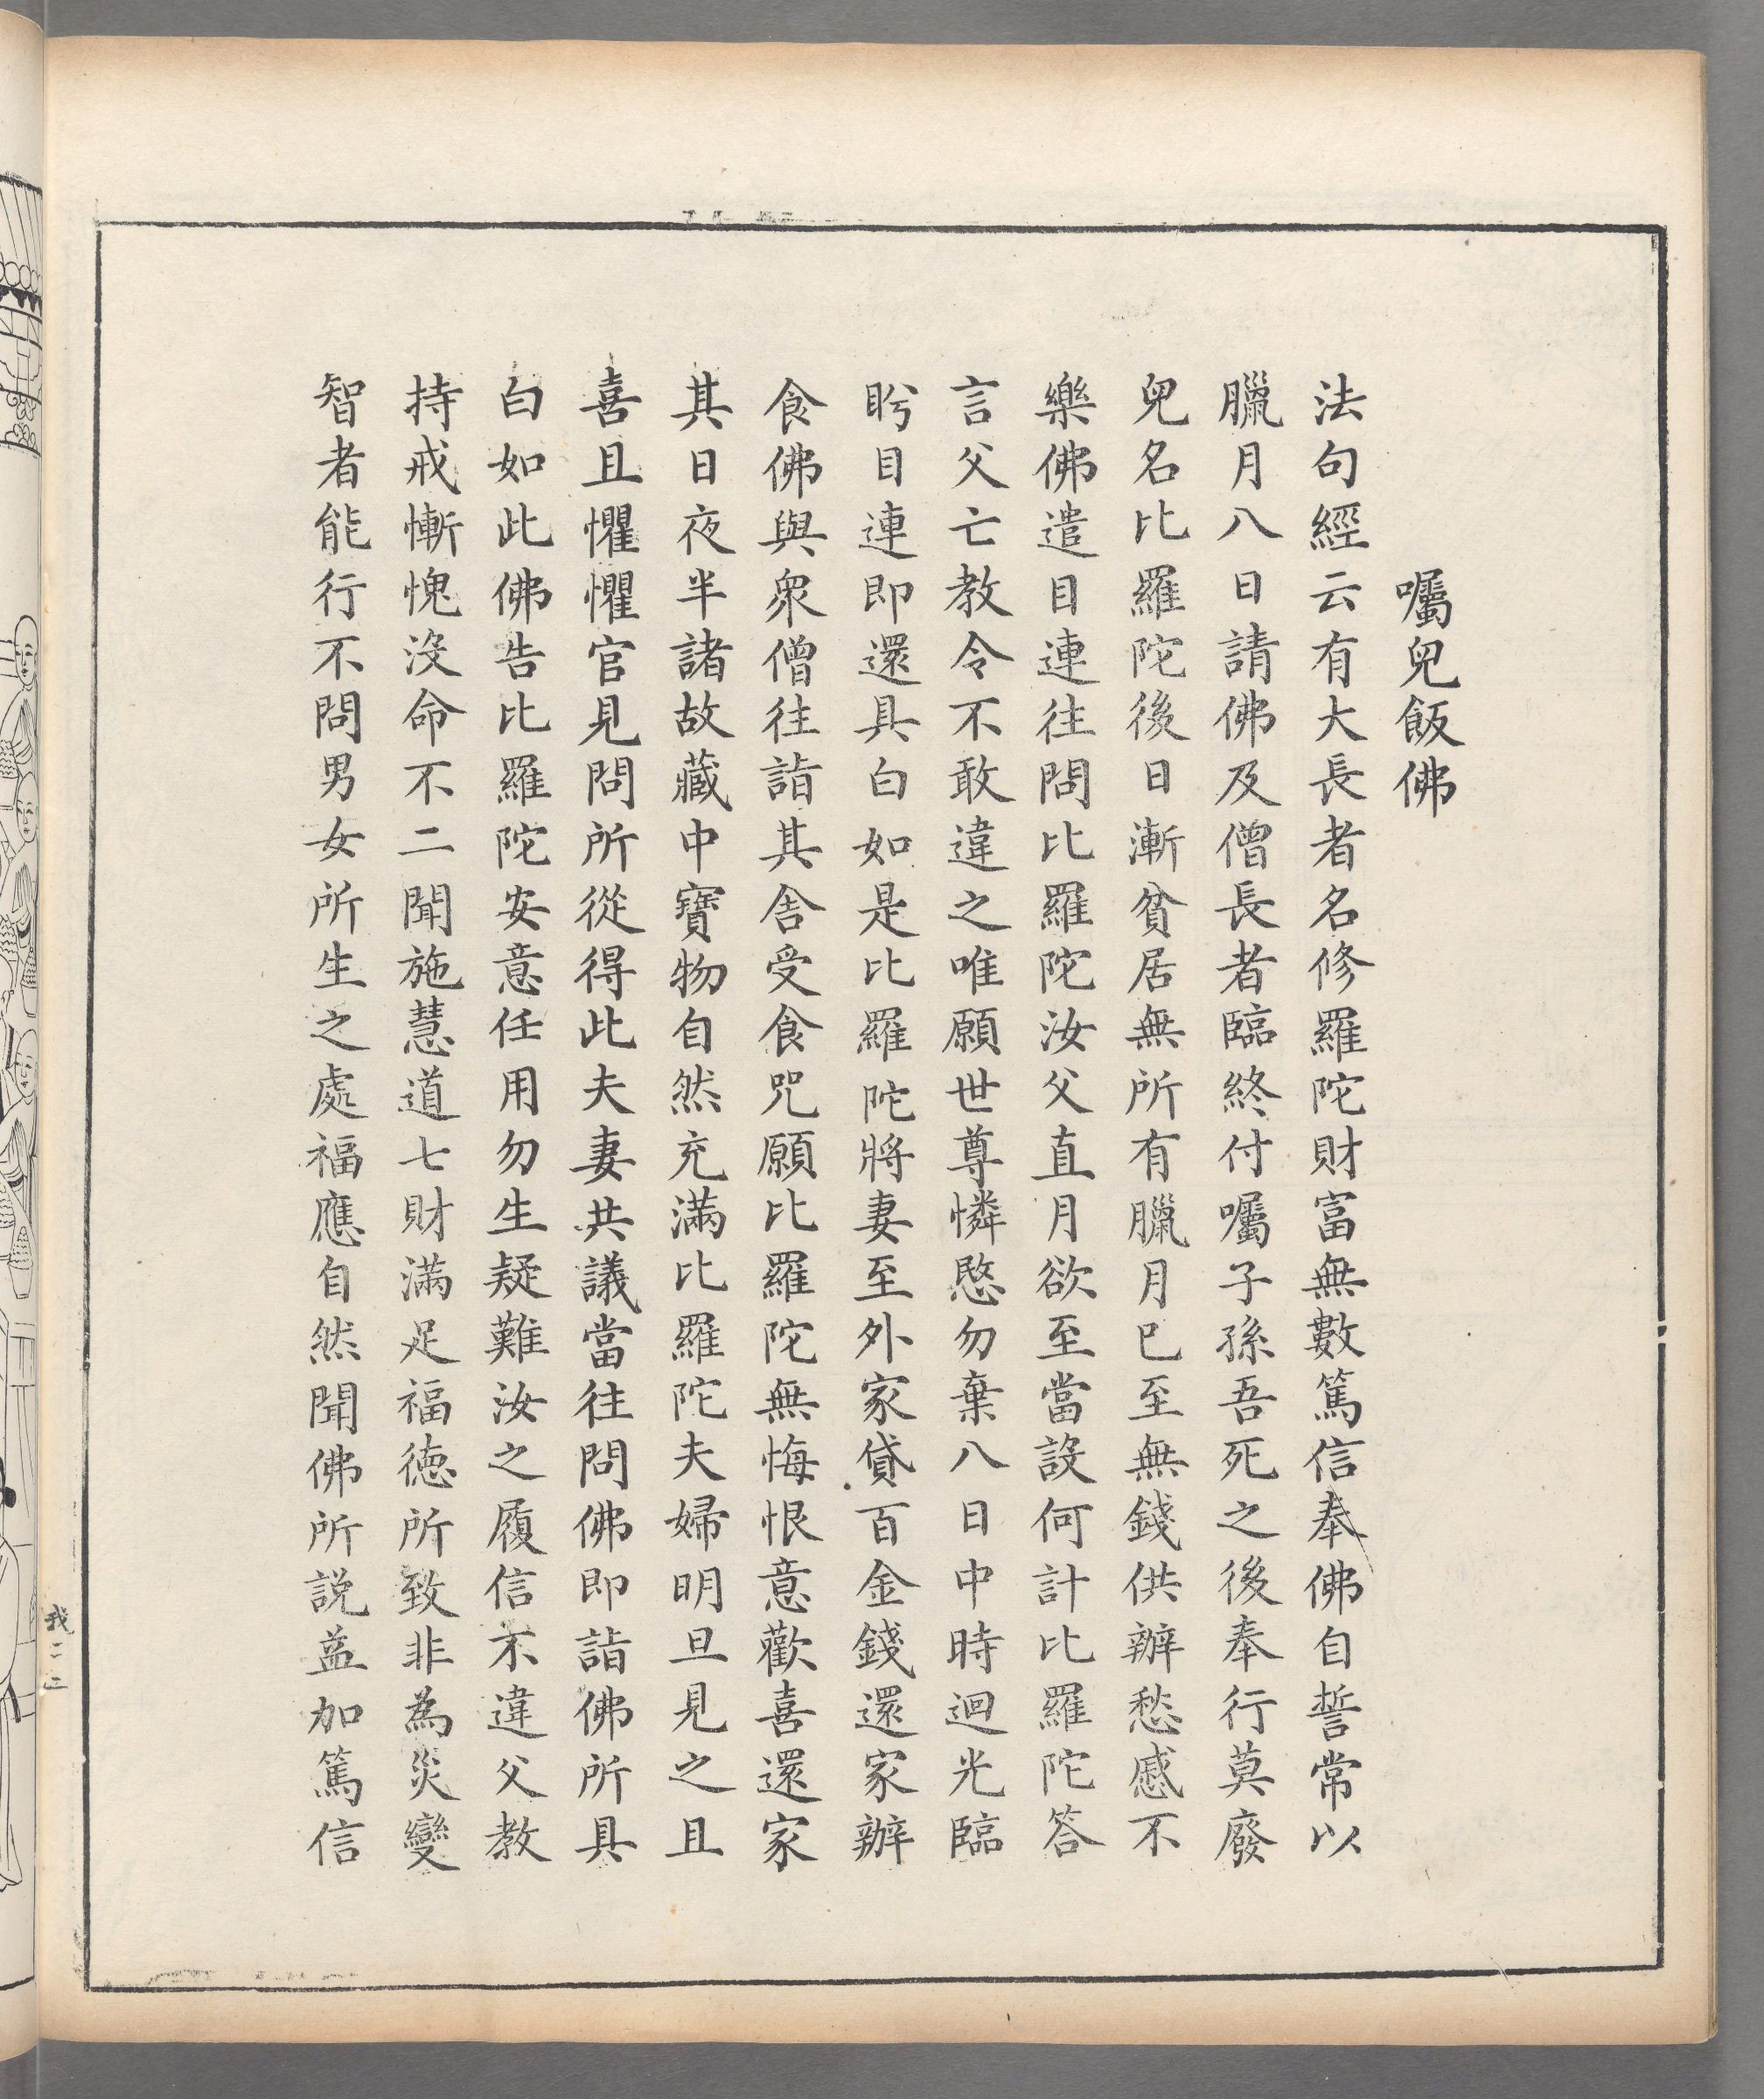 囑兒飯佛
法句經云有大長者名修羅陀財富無數篤信奉佛自誓常以
臘月八日請佛及僧長者臨終付囑子孫吾死之後奉行莫廢
兒名比羅陀後日漸貧居無所有臘月已至無錢供辦愁慼不
樂佛遣目連往問比羅陀汝父直月欲至當設何計比羅陀答
言父亡教令不敢違之唯願世尊憐愍勿棄八日中時迴光臨
盻目連即還具白如是比羅陀將妻至外家貸百金錢還家辦
食佛與眾僧往詣其舍受食咒願比羅陀無悔恨意歡喜還家
其日夜半諸故藏中寶物自然充滿比羅陀夫婦明旦見之且
喜且懼懼官見問所從得此夫妻共議當往問佛即詣佛所具
白如此佛告比羅陀安意任用勿生疑難汝之履信不違父教
持戒慚愧沒命不二聞施慧道七財滿足福德所致非為災變
智者能行不問男女所生之處福應自然聞佛所說益加篤信